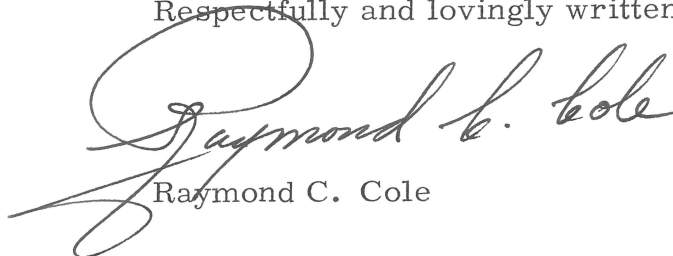 Respectfully and lovingly written
Raymond C. Cole
Raymond C. Cole